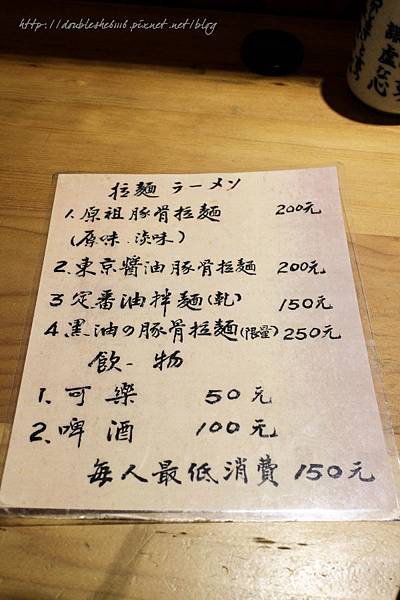 http://doubleshe6116.pixnet.net/blog
拉麵 ラーメン
1. 原祖豚骨拉麵 200元
(原味.淡味)
2. 東京醬油豚骨拉麵 200元
3 定番油拌麵(乾) 150元
4 黑油の豚骨拉麵(限量) 250元
飲-物
1. 可樂 50元
2. 啤酒 100元
每人最低消費 150元